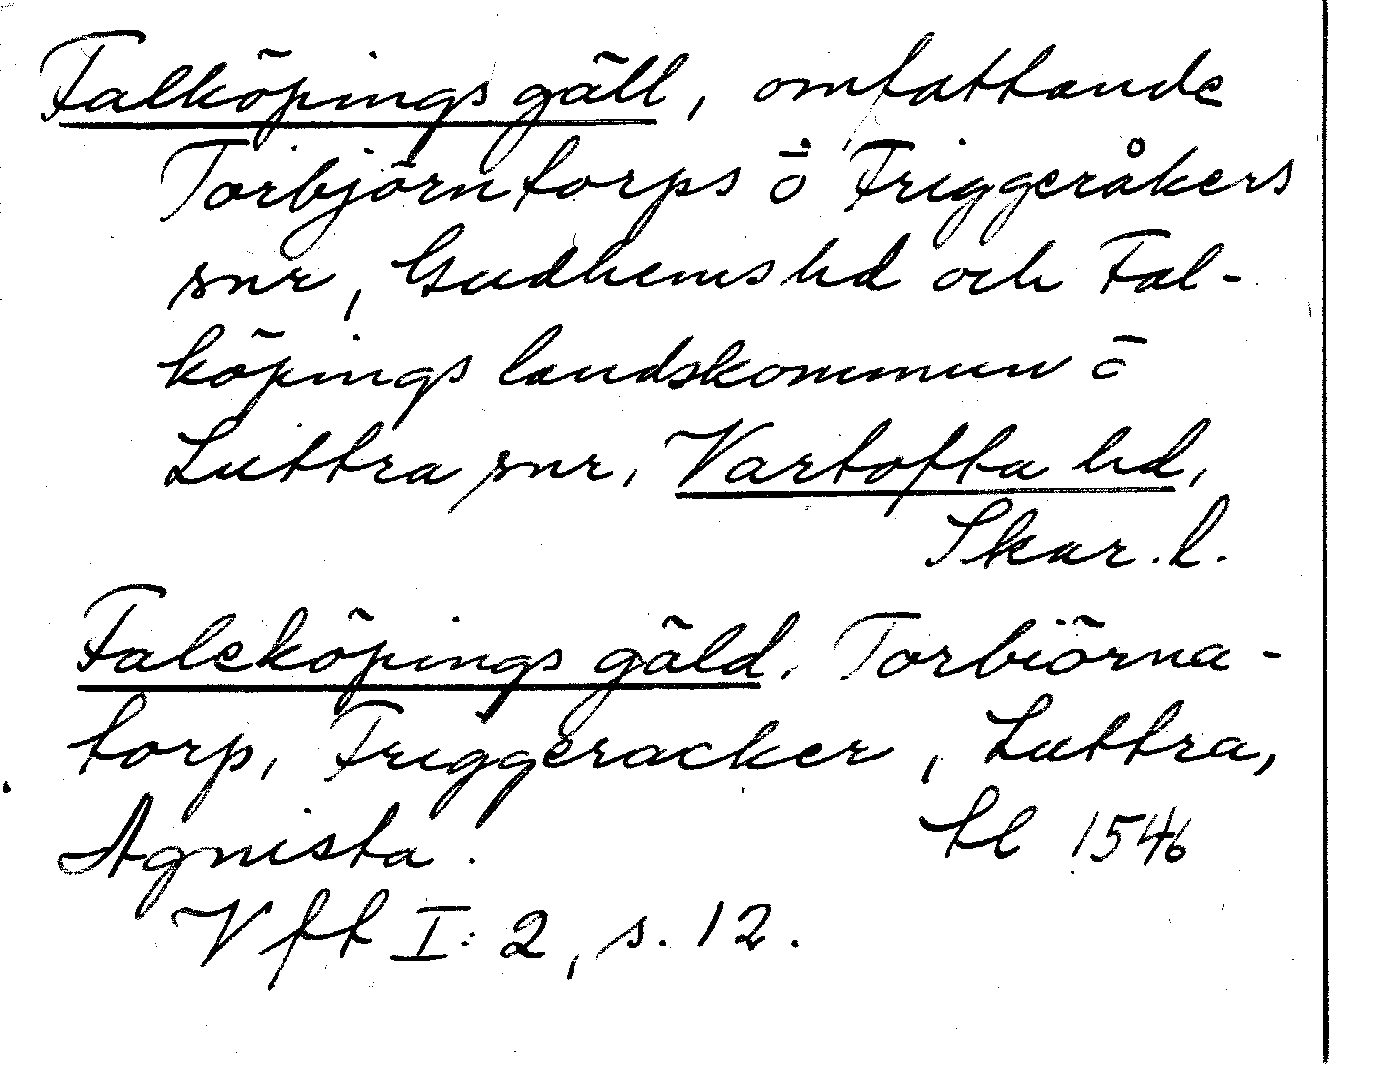 Falköpings gäll, omfattande
Torbjörntorps o̅ Friggeråkers
snr, Gudhems hd och Fal-
köpings landskommun o̅
Luttra snr, Vartofta hd,
Skar. l.
Falcköpings gäld. Torbiörna-
torp, Friggeracker, Luttra,
Agnista. tl 1546
Vft I:2, s. 12.